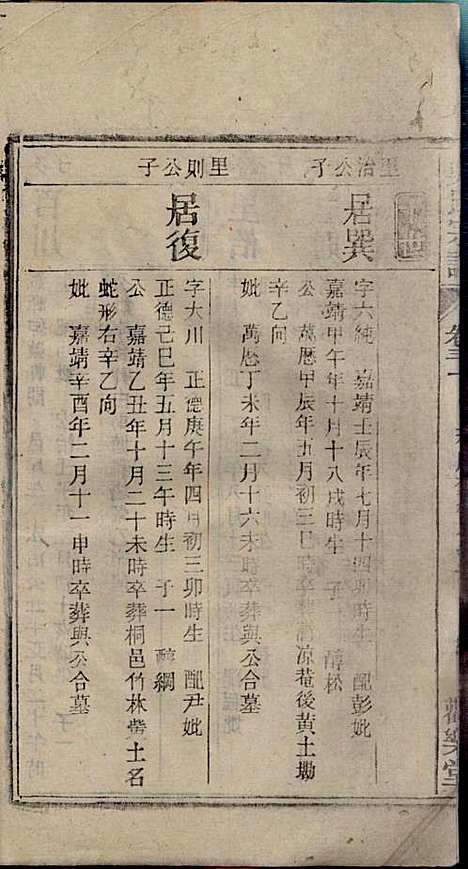 里治公子
居巽
字六純　嘉靖壬辰年七月十四卯時生　配彭妣
嘉靖甲午年十月十八戌時生　子一　醇松
公　萬歷甲辰年五月初三巳時卒葬 凉菴後黃土坳
辛乙向
妣　萬歷丁未年二月十六未時卒葬與公合墓
里則公子
居復
字大川　正德庚午年四月初三卯時生　配尹妣
正德己巳年五月十三午時生　子一　醇綱
公　嘉靖乙丑年十月二十未時卒葬桐邑竹林 土名
蛇形右辛乙向
妣　嘉靖辛酉年二月十一申時卒葬與公合墓